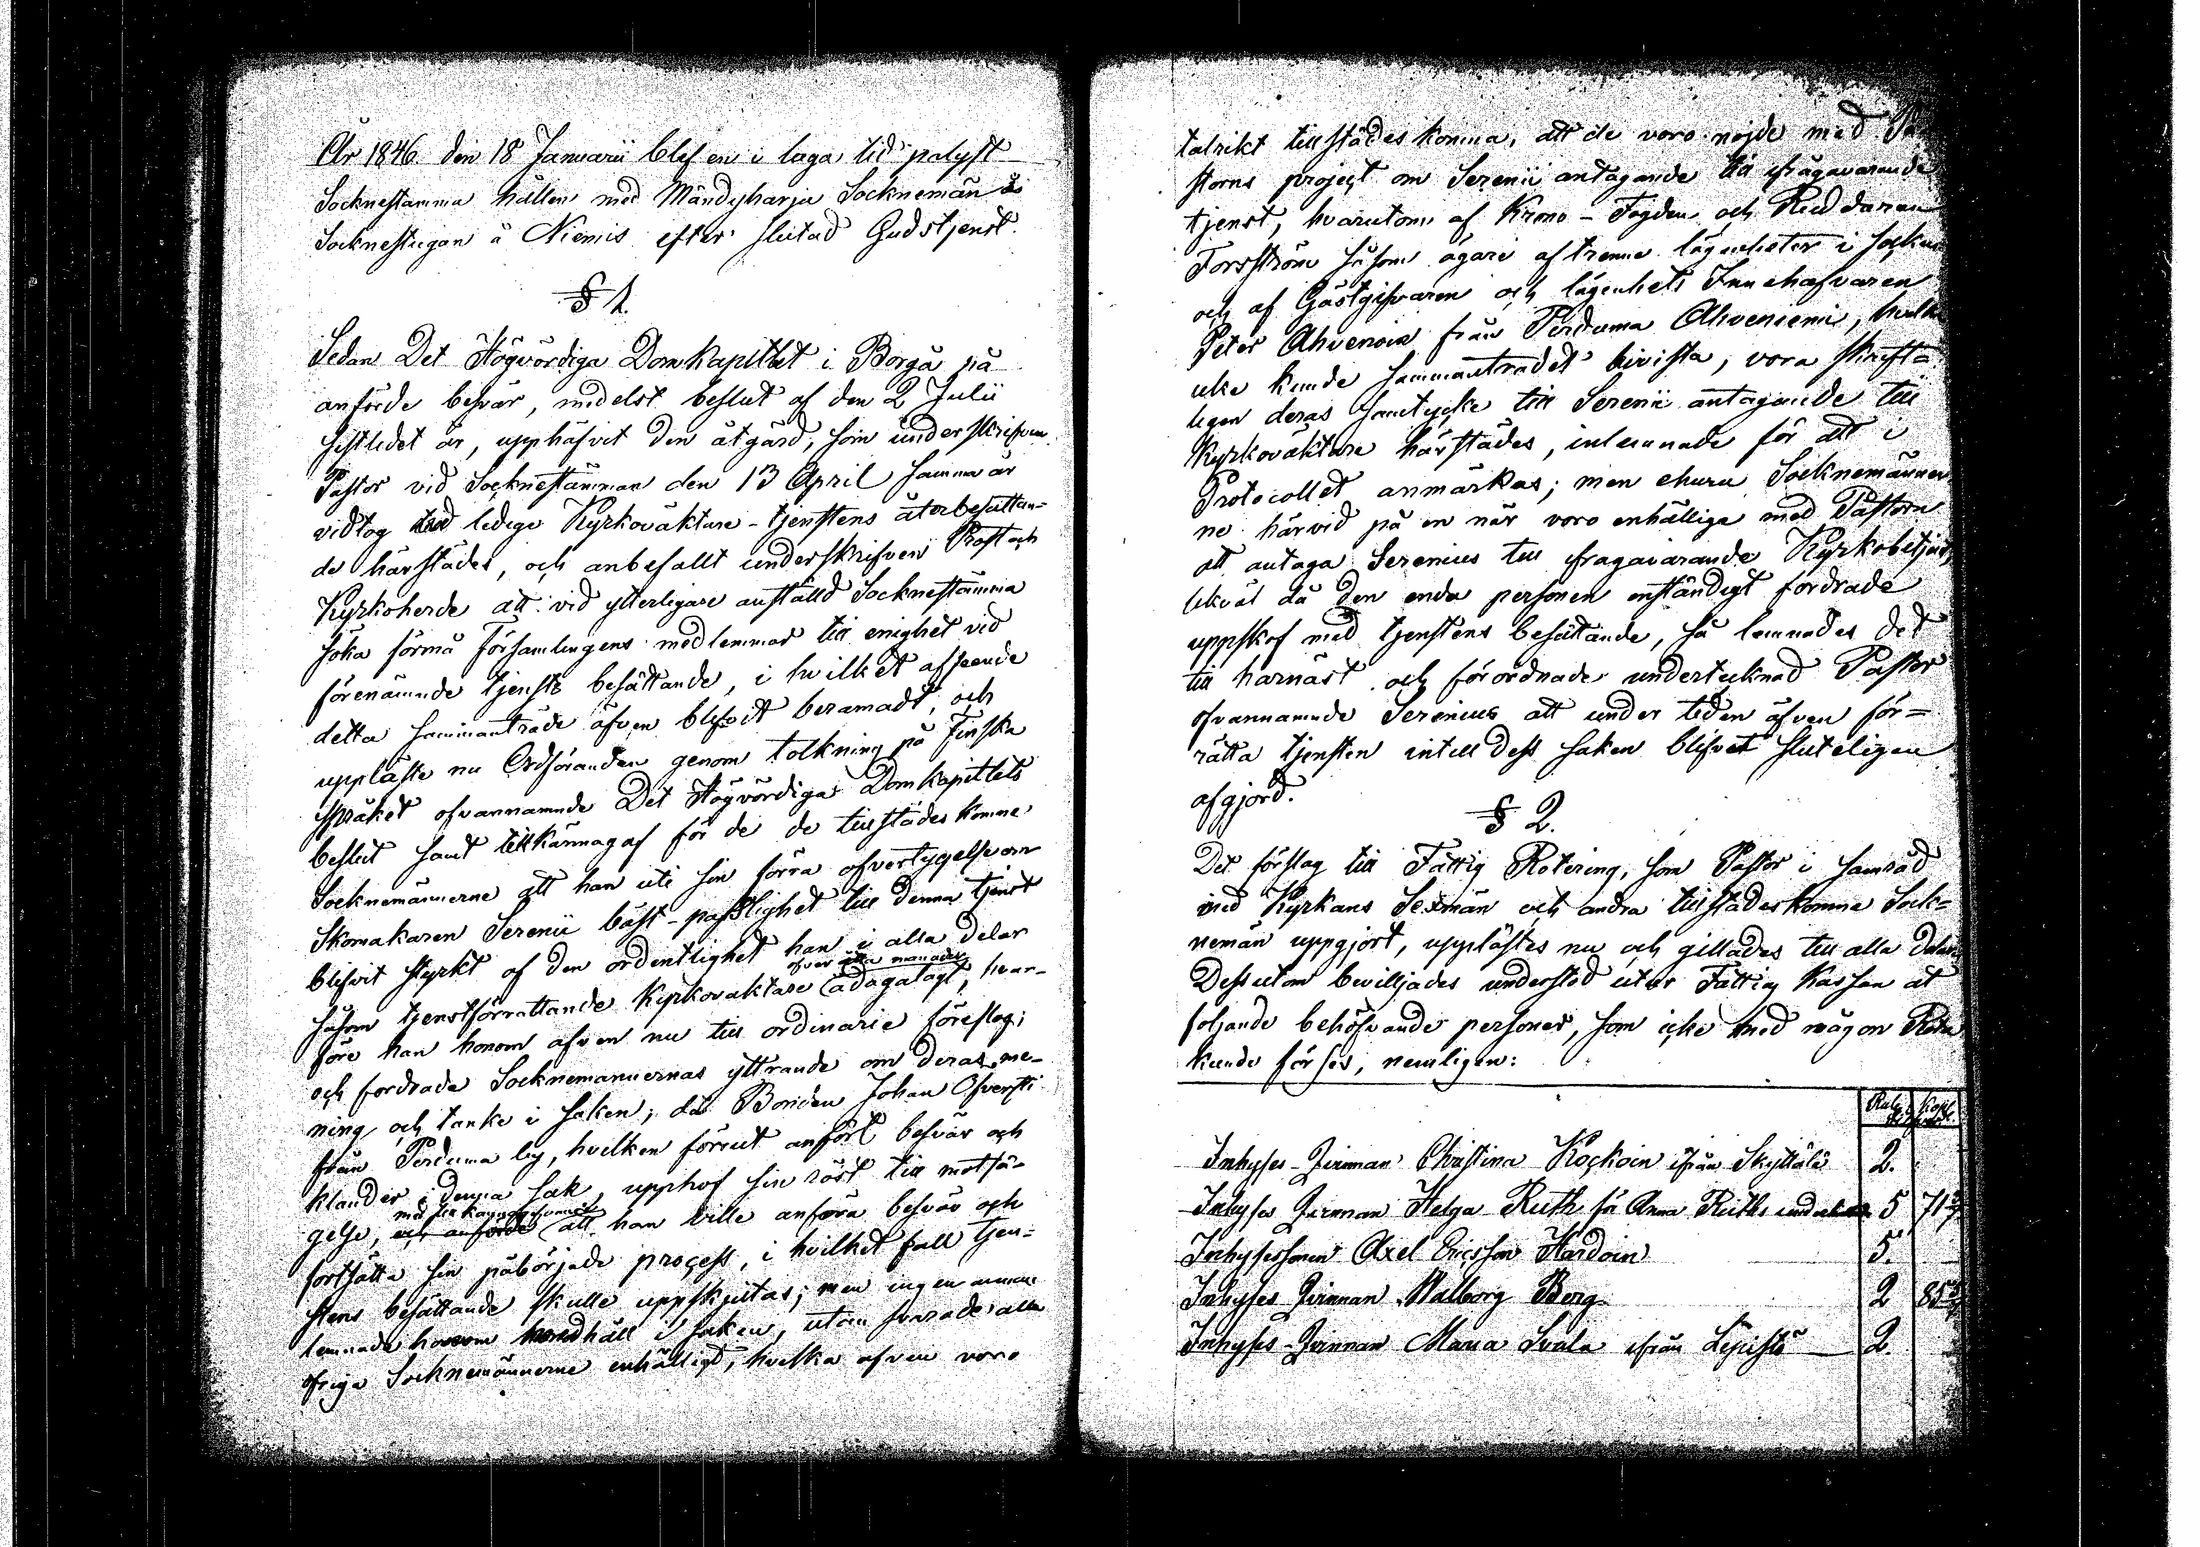 År 1846 den 18 Januarii blef en i laga tid pålyst
Socknestämma hållen med Mändyharju Socknemän i
Socknestugan å Niemis efter slutad Gudstjenst.
§ 1.
Sedan Det Högvördiga Domkapitlet i Borgå på
anförde besvär, medelst beslut af den 2 Julii
sistledet år, upphäfvit den åtgärd, som underskrifven
Pastor vid Socknestämman den 13 April samma år
vidtog med lediga Kyrkoväktare-tjenstens återbesättan-
de härstädes, och anbefallt underskrifven Prost och
Kyrkoherde att vid ytterligare anställd Socknestämma
söka förmå Församlingens medlemmar till enighet vid
förenämnde tjensts besättande, i hvilket afseende
detta sammanträde äfven blifvit beramadt, och
uppläste nu Ordföranden genom tolkning på Finska
språket ofvannämnde Det Högvördiga Domkapitlets
beslut samt tillkännagaf för de de tillstädes komne
Socknemännerne att han uti sin förra öfvertygelse om
Skomakaren Serenii bäst-passlighet till denna tjenst
blifvit styrkt af den ordentlighet han i alla delar
öfver åtta månader
såsom tjenstförrättande Kyrkovaktare ådagalagt, hvar-
före han honom äfven nu till ordinarie föreslog;
och fordrade Socknemännernas yttrande om deras me-
ning och tanke i saken; då Bonden Johan Ofversti
från Perduma by, hvilken förrut anfört besvär och
klander i denna sak, upphof sin röst till motsä-
med tillkännagifvande
gelse, och anförde att han ville anföra besvär och
fortsätta sin påbörjade process, i hvilket fall tjen-
stens besättande skulle uppskjutas; men ingen annan
lemnade honom medhåll i saken, utan svarade alla
öfriga Socknemännerne enhälligt, hvilka äfven voro
talrikt tillstädes komna, att de voro nöjde med Pa-
storns project om Serenii antagande till ifrågavarande
tjenst, hvarutom af Krono-Fogden och Riddaren
Forsström såsom ägare af trenne lägenheter i Socken
och af Gästgifvaren och lägenhets Innehafvaren
Peter Ahvenoin från Perduma Ahveniemi, hvilka
icke kunde sammanträdet bivista, vora skrift-
ligen deras samtycke till Serenii antagande till
Kyrkoväktare härstädes, inlemnade för att i
Protocollet anmärkas; men ehuru Socknemänner
ne härvid på en när voro enhällige med Pastorn
att antaga Serenius till ifragavarande Kyrkobetjent,
likväl då den enda personen enständigt fordrade
uppskof med tjenstens besättande, så lemnades det
till härnäst och förordnade undertecknad Pastor
ofvannämnde Serenius att under tiden äfven för-
rätta tjensten intill dess saken blifvit sluteligen
afgjord.
§ 2.
Det förslag till Fattig Rotering, som Pastor i samråd
med Kyrkans Sexmän och andra tillstädeskomna Sock-
nemän uppgjort, upplästes nu och gillades till alla delar.
Dessutom beviljades understöd utur Fattig Kassan åt
följande behöfvande personer, som icke med någon Rota
kunde förses, nemligen:
Rub. Kop.
Inhyses-Qvinnan Christina Kockoin ifrån Skyttälä 2.
Inhyses Qvinnan Helga Ruth för Anna Ruths 5 71 3/7
Inhysessonen Axel Ericsson Hardoin 5.
Inhyses Qvinnan Walborg Berg 2 85 5/7
Inhyses-Qvinnan Maria Svala ifrån Lepistö 2.